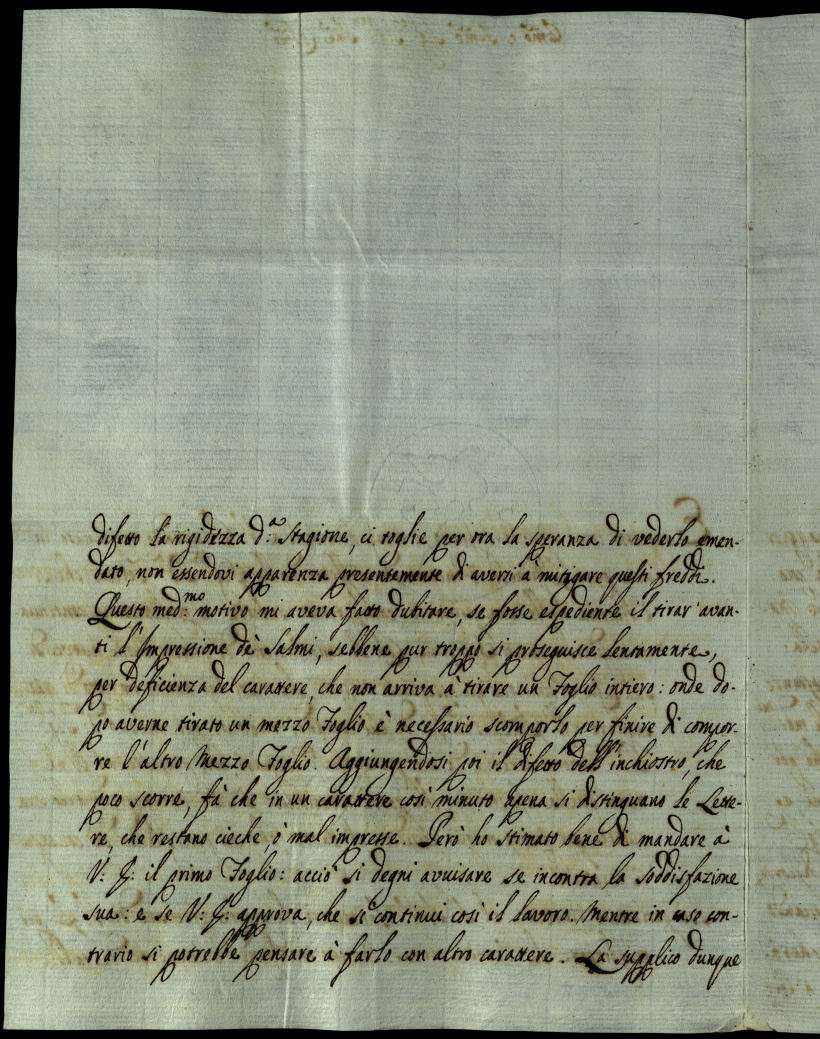 difetto la rigidezza d.ª Stagione, ci toglie per ora la speranza di vederlo emen-
dato, non essendovi apparenza presentemente di aversi à mitigare questi freddi.
Questo med:mo motivo mi aveva fatto dubitare, se fosse espediente il tirar' avan-
ti l'Impressione dè Salmi, sebbene pur troppo si proseguisce lentamente,
per deficienza del carattere, che non arriva à tirare un Foglio intiero: onde do-
po averne tirato un mezzo Foglio è necessario scomporlo per finire di compor-
re l'altro Mezzo Foglio. Aggiungendosi poi il difetto dell'inchiostro, che
poco scorre, fà che in un carattere così minuto apena si distinguano le Lette-
re, che restano cieche, ò mal impresse. Però ho stimato bene di mandare à
V: S: il primo Foglio: acciò si degni avvisare se incontra la soddisfazione
sua: e se V: S: approva, che si continui così il lavoro. Mentre in caso con-
trario si potrebbe pensare à farlo con altro carattere. La supplico dunque